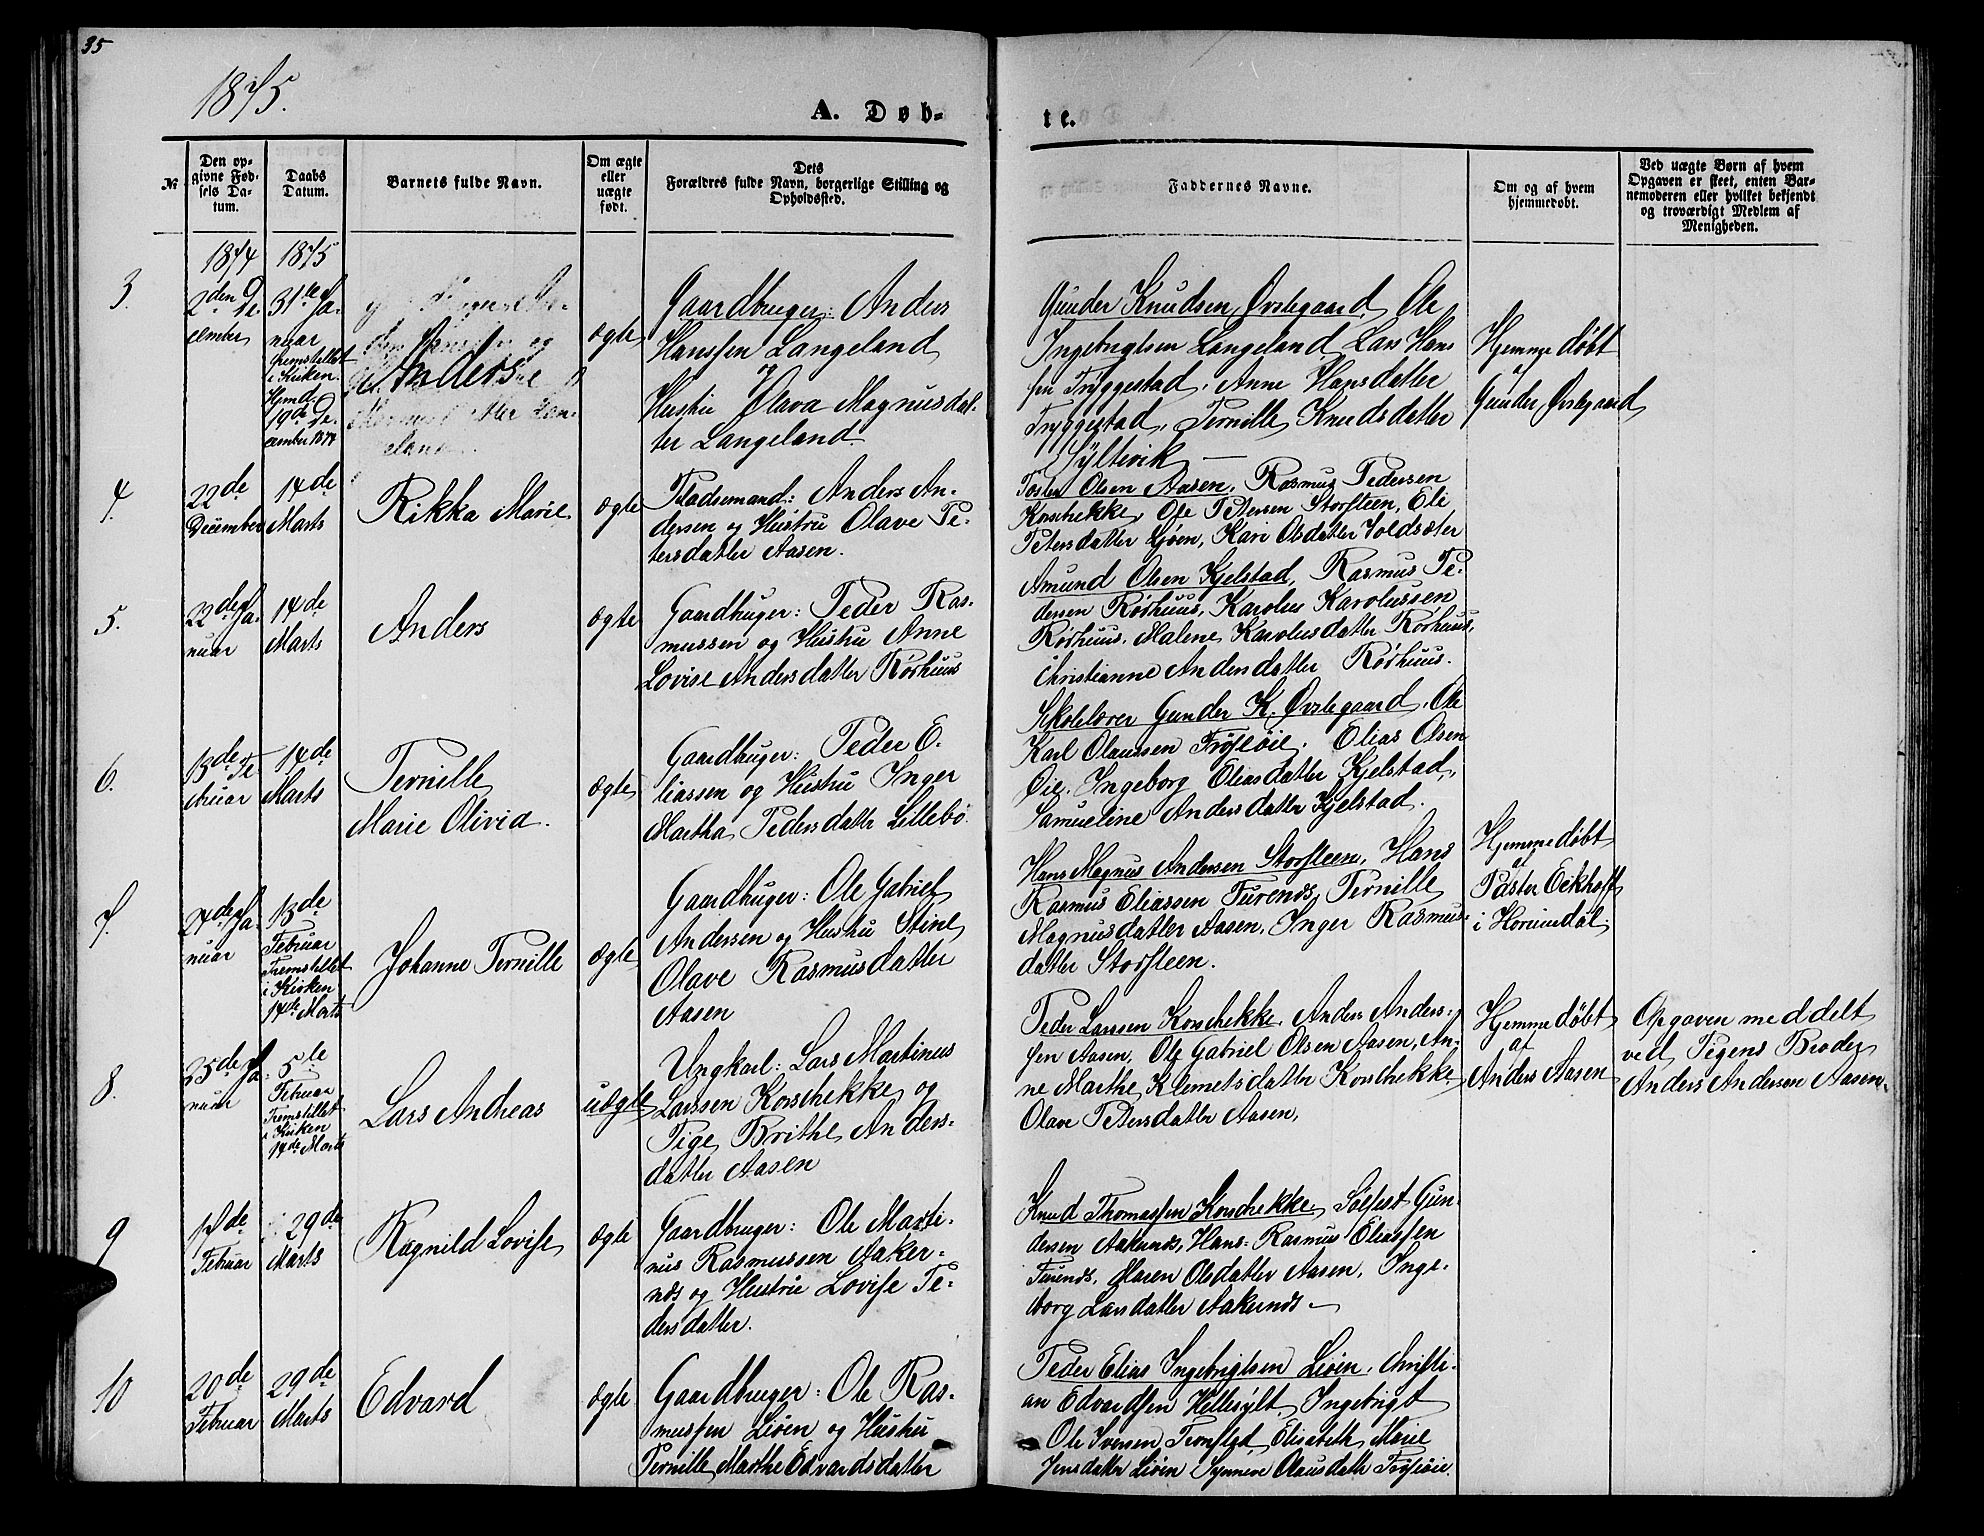 35
1875.
A. Døb-
te.
№
Den op-
givne Fød-
sels Da-
tum.
Daabs
Datum.
Barnets fulde Navn.
Om ægte
eller
uægte
født.
Dets
Forældres fulde Navn, borgerlige Stilling og
Opholdssted.
Faddernes Navne.
Om og af hvem
hjemmedøbt.
Ved uægte Børn af hvem
Opgaven er skeet, enten Bar-
nemoderen eller hvilket bekjendt
og troværdigt Medlem af
Menigheden.
1874
1875
3.
2den De-
cember
31te Ja-
nuar
fremstillet
i Kirken.
Hjmd.
19de De-
cember 1874
Anders
ægte
Gaardbruger: Anders
Hanssen Langeland
og
Hustru Olava Magnusdat-
ter Langeland.
Gunder Knudsen Øvstegaard, Ole
Ingebrigtsen Langeland, Lars Hans
sen Tryggestad, Anne Hansdatter
Tryggestad, Pernille Knudsdatter
Syltevik
Hjemmedøbt
af
Gunder Øvstegaard
4.
22de
December
14de
Marts
Rikka Marie
ægte
Pladsemand: Anders An-
dersen og Hustru Olave Pe-
tersdatter Aasen.
Peder Olsen Aasen, Rasmus Pedersen
Korsbrekke, Ole Petersen Storsteen, Eli
Petersdatter Ljøen, Kari Olsdatter Voldsæter
5.
22de Ja-
nuar
14de
Marts
Anders
ægte
Gaardbruger: Peder Ras-
mussen og Hustru Anne
Lovise Andersdatter Rørhuus
Amund Olsen Kjelstad, Rasmus Pe-
dersen Rørhuus, Karolus Karolussen
Rørhuus, Malene Karolusdatter Rørhuus,
Christianne Andersdatter Rørhuus.
6.
13de Fe-
bruar
14de
Marts
Pernille
Marie Olivia.
ægte
Gaardbruger: Peder E-
liassen og Hustru Inger
Martha Pedersdatter Lillebø
Skolelærer Gunder K. Øvstegaard, Ole
Karl Olaussen Frøysøie. Elias Olsen
Øie, Ingeborg Eliasdatter Kjelstad,
Samueline Andersdatter Kjelstad.
7.
24de Ja-
nuar
13de
Februar
Fremstillet
i Kirken
14de Marts
Johanne Pernille
ægte
Gaardbruger: Ole Gabriel
Andersen og Hustru Stine
Olave Rasmusdatter
Aasen
Hans Magnus Andersen Storsteen, Hans
Rasmus Eliassen Furenæs, Pernille
Magnusdatter Aasen, Inger Rasmus-
datter Storsteen.
Hjemmedøbt
af
Pastor Eckhoff
i Horrindal.
8.
25de Ja-
nuar
5te
Februar
Fremstillet
i Kirken
14de Marts
Lars Andreas
uægte
Ungkarl: Lars Martinus
Larssen Korsbrekke og
Pige Brithe Anders-
datter Aasen
Peder Larssen Korsbrekke, Anders Anders-
sen Aasen, Ole Gabriel Olsen Aasen, An-
ne Marthe Klemetsdatter Korsbrekke,
Olave Petersdatter Aasen,
Hjemmedøbt
af
Anders Aasen
Opgaven meddelt
ved Pigens Broder
Anders Andersen Aasen.
9
17de
Februar
29de
Marts
Ragnild Lovise
ægte
Gaardbruger: Ole Marti-
nus Rasmussen Aaker-
næs og Hustru Lovise Pe-
dersdatter.
Knud Thomassen Korsbrekke, Sølfest Gun-
dersen Aakernæs, Hans Rasmus Eliassen
Furenæs, Maren Olsdatter Aasen, Inge-
borg Larsdatter Aakernæs
10
20de
Februar
29de
Marts
Edvard
ægte
Gaardbruger: Ole Ras-
mussen Liøen og Hustru
Pernille Marthe Edvardsdatter
Peder Elias Ingebrigtsen Liøen, Christi-
an Edvardsen Hellesylt, Ingebrigt
Ole Iversen Tronstad, Elisabeth Marie
Jensdatter Liøen Synneve Olausdatter Frøysøie.